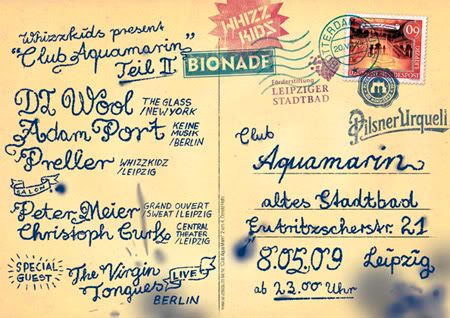 Whizzkids present
"Club Aquamarin"
Teil II
DJ Wool THE GLASS / NEW YORK
Adam Port KEINE MUSIK / BERLIN
Preller WHIZZKIDZ / LEIPZIG
SALON
Peter Meier GRAND OUVERT / SWEAT / LEIPZIG
Christoph Gurk CENTRAL THEATER / LEIPZIG
SPECIAL GUEST
The Virgin Tongues LIVE
BERLIN
WHIZZ KIDS
BIONADE
Förderstiftung
LEIPZIGER
STADTBAD
TTERDA
60
Pilsner Urquell
Club
Aquamarin
altes Stadtbad
Eutritzscherstr. 21
8.05.09 Leipzig
ab 23.00 Uhr